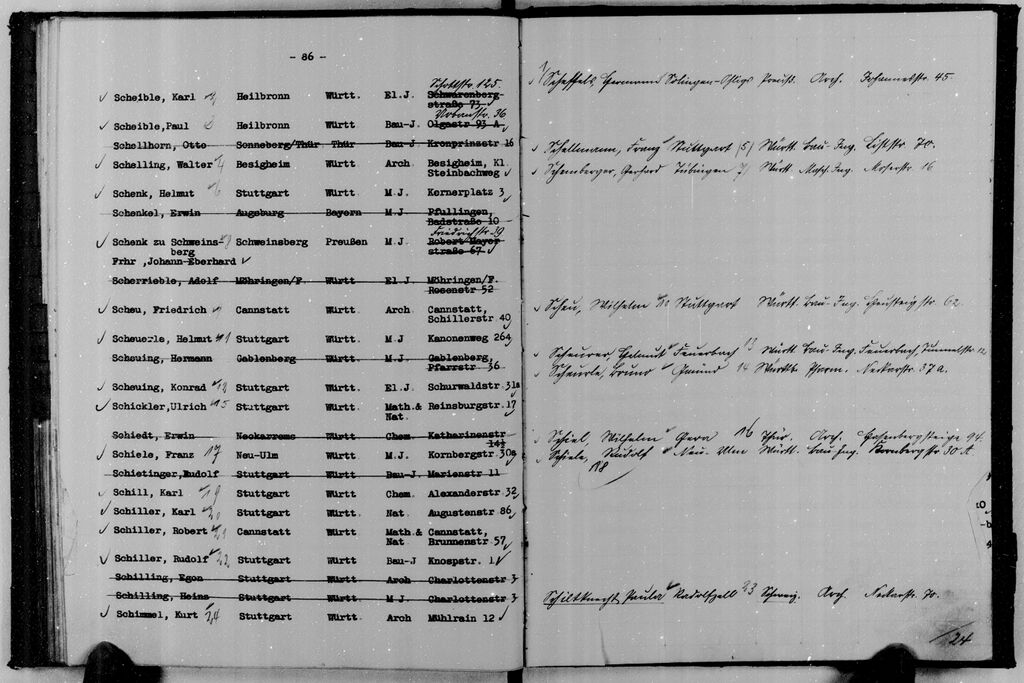 - 86 -
Schottstr. 125.
Scheible, Karl Heilbronn Württ. El.J. Schwarenberg-
straße 73
Urbanstr. 36
Scheible, Paul 2 Heilbronn Württ Bau-J. Olgastr 93 A
Schellhorn, Otto Sonneberg/Thür Thür Bau-J Kronprinzstr 16
Schelling, Walter 4 Besigheim Württ Arch. Besigheim, Kl.
Steinbachweg
Schenk, Helmut 6 Stuttgart Württ. M.J. Kernerplatz 3
Schenkel, Erwin Augsburg Bayern M.J Pfullingen,
Badstraße 10
Friedrichstr. 39
Schenk zu Schweins- 8 Schweinsberg Preußen M.J. Robert Mayer
berg straße 67
Frhr ,Johann-Eberhard
Scherrieble, Adolf Möhringen/F. Württ El.J Möhringen/F.
Rosenstr 52
Scheu, Friedrich 9 Cannstatt Württ. Arch. Cannstatt,
Schillerstr 40
Scheuerle, Helmut 11 Stuttgart Württ. M.J Kanonenweg 26a
Scheuing, Hermann Gablenberg Württ M.J. Gablenberg,
Pfarrstr 36
Scheuing, Konrad 12 Stuttgart Württ. El.J. Schurwaldstr 31a
Schickler,Ulrich 15 Stuttgart Württ. Math.& Reinsburgstr.17
Nat.
Schiedt, Erwin Neckarrems Württ Chem. Katharinenstr
14½
Schiele, Franz 17 Neu-Ulm Württ. M.J. Kornbergstr 30a
Schietinger,Rudolf Stuttgart Württ Bau-J Marienstr 11
Schill, Karl 19 Stuttgart Württ. Chem. Alexanderstr 32
Schiller, Karl 20 Stuttgart Württ. Nat. Augustenstr 86
Schiller, Robert 21 Cannstatt Württ. Math & Cannstatt,
Nat Brunnenstr 57
Schiller, Rudolf 22 Stuttgart Württ. Bau-J Knospstr. 1
Schilling, Egon Stuttgart Württ Arch Charlottenstr 3
Schilling, Heinz Stuttgart Württ M J. Charlottenstr 3
Schimmel, Kurt 24 Stuttgart Württ Arch Mühlrain 12
Scheffels, Hermann Solingen-Ohligs Preuß. Arch. Johannesstr. 45
Schellmann, Franz Stuttgart (5) Württ. Bau-Ing. Liststr. 70.
Schemberger, Gerhard Tübingen 7 Württ. Masch. Ing. Moserstr. 16
Scheu, Wilhelm 10 Stuttgart Württ. Bau-Ing. Hausteigstr 62.
Scheurer, Helmut Feuerbach 13 Württ. Bau-Ing. Feuerbach, Tunnelstr. 12
Scheurle, Bruno Gmünd 14 Württb. Pharm. Neckarstr. 37a.
Schiel, Wilhelm Gera 16 Thür. Arch. Hasenbergsteige 94.
Schiele, Rudolf Neu-Ulm Württ. Bau-Ing. Kornbergstr 30 A.
18
Schiltknecht, Paula Radolfzell 23 Schweiz. Arch Neckarstr. 70.
24